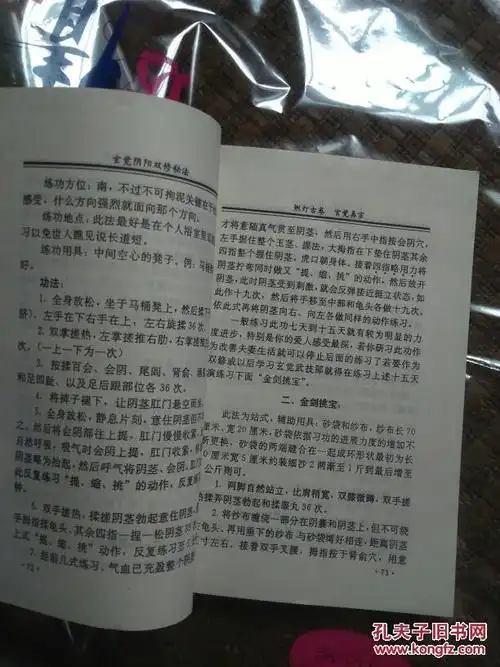 玄觉阴阳双修秘法
练功方位：南，不过不可拘泥关键在于
感受，什么方向强烈就面向那个方向。
练功地点：此法最好是在个人浴室
习以免世人瞧见说长道短。
练功用具：中间空心的凳子，例：马桶
好。
功法：
1. 全身放松，坐于马桶凳上，然后
脐），左手在下右手在上，左右旋揉36次
2. 双掌搓热，左掌搓推右肋，右掌
次。（一上一下为一次）
3. 按揉百会、会阴、尾闾、肾俞、
和足四趾、以及足后跟部位各36次。
4. 将裤子褪下，让阴茎肛门悬空而坐，
5. 全身放松，静息片刻，意住阴茎但不
然后将会阴部往上提，肛门慢慢收紧，
自然呼吸，吸气时会阴上提、肛门收紧，
阴茎略为抬起，然后呼气将阴茎、会阴、肛门
此反复练习"提、缩、挑"的动作，反复
6. 双手搓热，揉搓阴茎勃起意住阴茎
手拇指揉龟头，其余四指一捏一松阴茎
上式"提、缩、挑"动作，反复练习至
7. 是前几式练习，气血已充盈整个阴茎
·72·
燃灯古卷 玄觉真宗
才将意随真气贯至阴茎，然后用右手中指按会阴穴，
左手握住整个玉茎、握法：大拇指在下垫住阴茎其余
四指整个握住阴茎，虎口朝身体，接着四指略用力将
阴茎拧弯同时做又"提、缩、挑"的动作，然后放开
阴茎，此时阴茎受到刺激，就会反弹接近挺立状态，如
此作十九次，然后将手移至中部和龟头各做十九次。
依此式再将阴茎向右、向左各做同样的动作练习。
一般练习此功七天到十五天就有较为明显的力
度进步，特别是你的爱人感受最深，若你研习此功作
为改善夫妻生活就可以停止后面的练习了若要作为
双修或以后学习玄觉武技那就得在练习上述十五天
演练习下面"金剑挑宝"。
二、金剑挑宝：
此法为站式，辅助用具、砂袋和纱布，纱布长70
厘米，宽20厘米，砂袋依据习功的进展力度的增加不
断更换，砂袋的两端缝合在一起成环形状最初为长
厘米宽5厘米约装细沙2两渐至1斤到最后增至
公斤则可。
1. 两脚自然站立，比肩稍宽，双膝微蹲，双手搓
揉弄阴茎勃起和揉睾丸36次。
2. 将纱布绕一部分在阴囊和阴茎上，但不可绕
龟头，再用垂下的纱布与砂袋缚好相连，距离阴茎
寸左右，接着双手叉腰，拇指按于肾俞穴，用意
·73·
孔夫子旧书网
www.kongfz.com